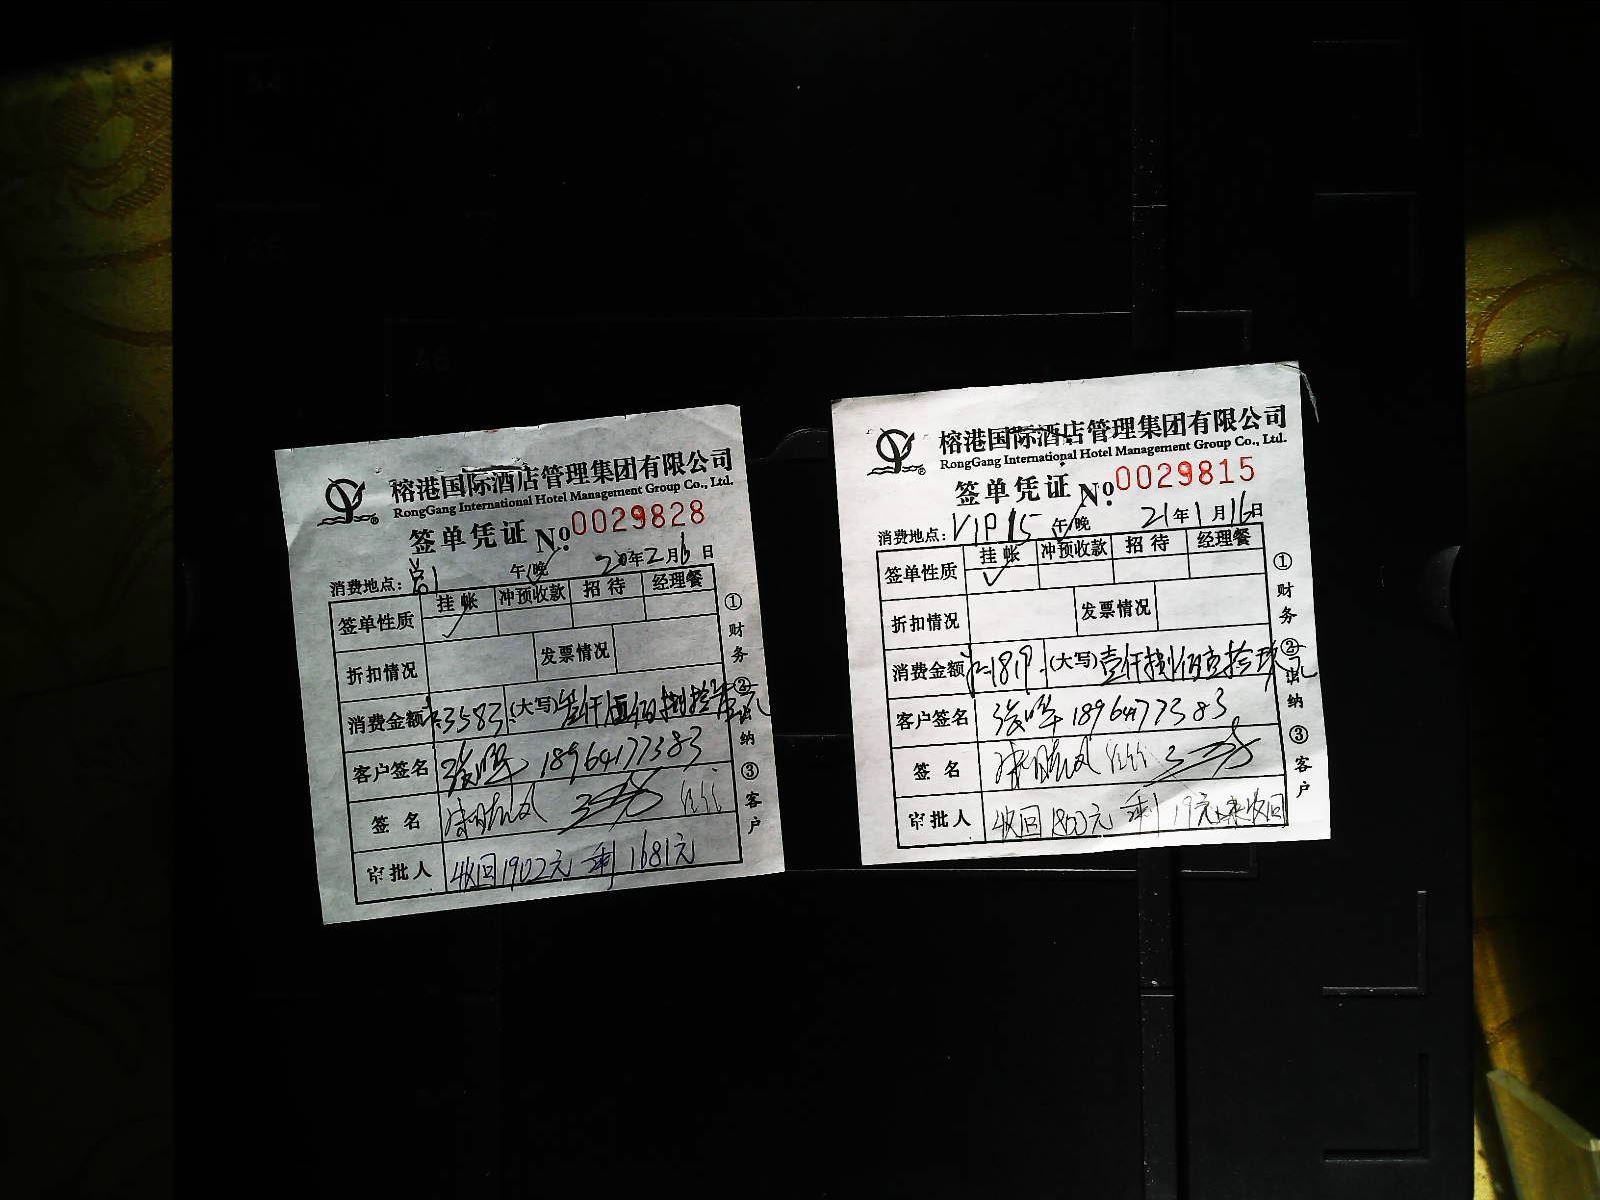 榕港国际酒店管理集团有限公司
RongGang International Hotel Management Group Co., Ltd.
签单凭证 No. 0029828
消费地点: 午/晚 20年2月6日
签单性质 挂帐 冲预收款 招待 经理餐
✓
折扣情况 发票情况
消费金额 3583 (大写)
客户签名 18964177383
签名
审批人 收回1902元 剩1681元
①财务 ②出纳 ③客户
榕港国际酒店管理集团有限公司
RongGang International Hotel Management Group Co., Ltd.
签单凭证 No. 0029815
消费地点: VIP 15 午/晚 21年1月16日
签单性质 挂帐 冲预收款 招待 经理餐
✓
折扣情况 发票情况
消费金额 1819 (大写) 壹仟捌佰壹拾玖元
客户签名 18964177383
签名
审批人 收回1800元 剩19元未收回
①财务 ②出纳 ③客户